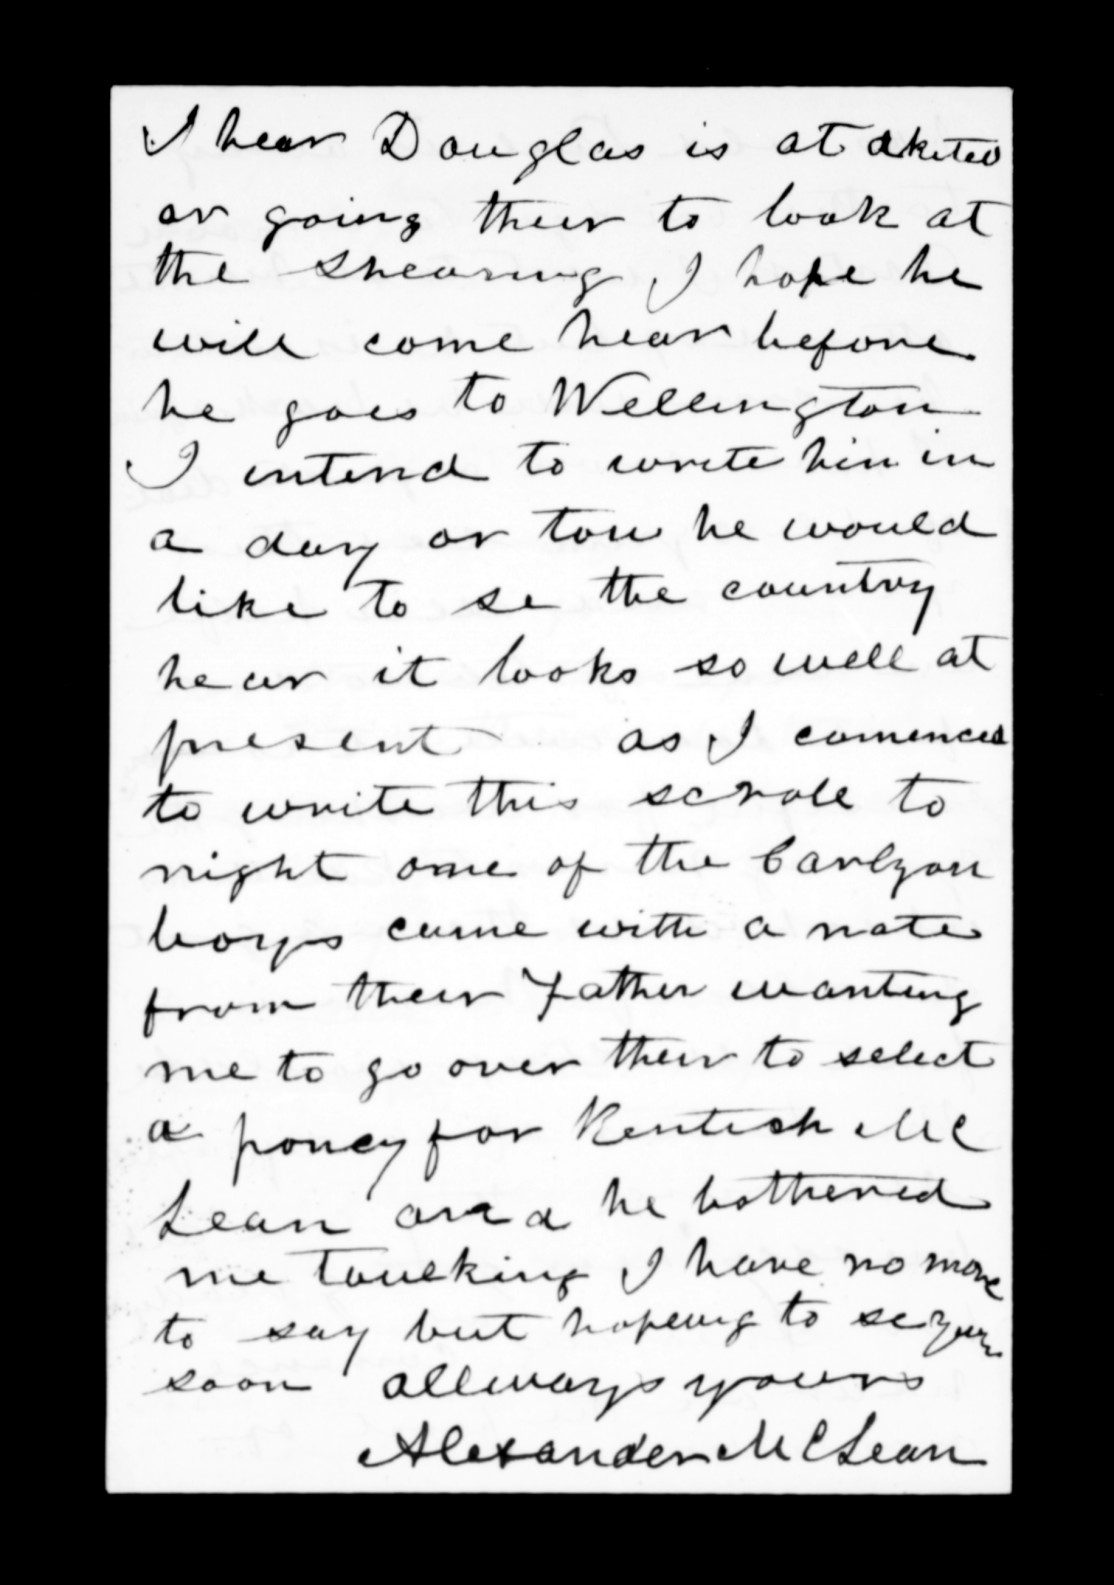 I hear Douglas is at akiteo
or going theer to look at
the shearing I hope he
will come hear before
he goes to Wellington
I intend to write him in
a day or tow he would
like to se the country
hear it looks so well at
present as I comenced
to write this scrole to
night one of the Carlyon
boys came with a note
from their Father wanting
me to go over their to select
a poney for Kentish Mc
Lean and he bothered
me taulking I have no more
to say but hopeing to se you
soon allways yours
Alexander McLean